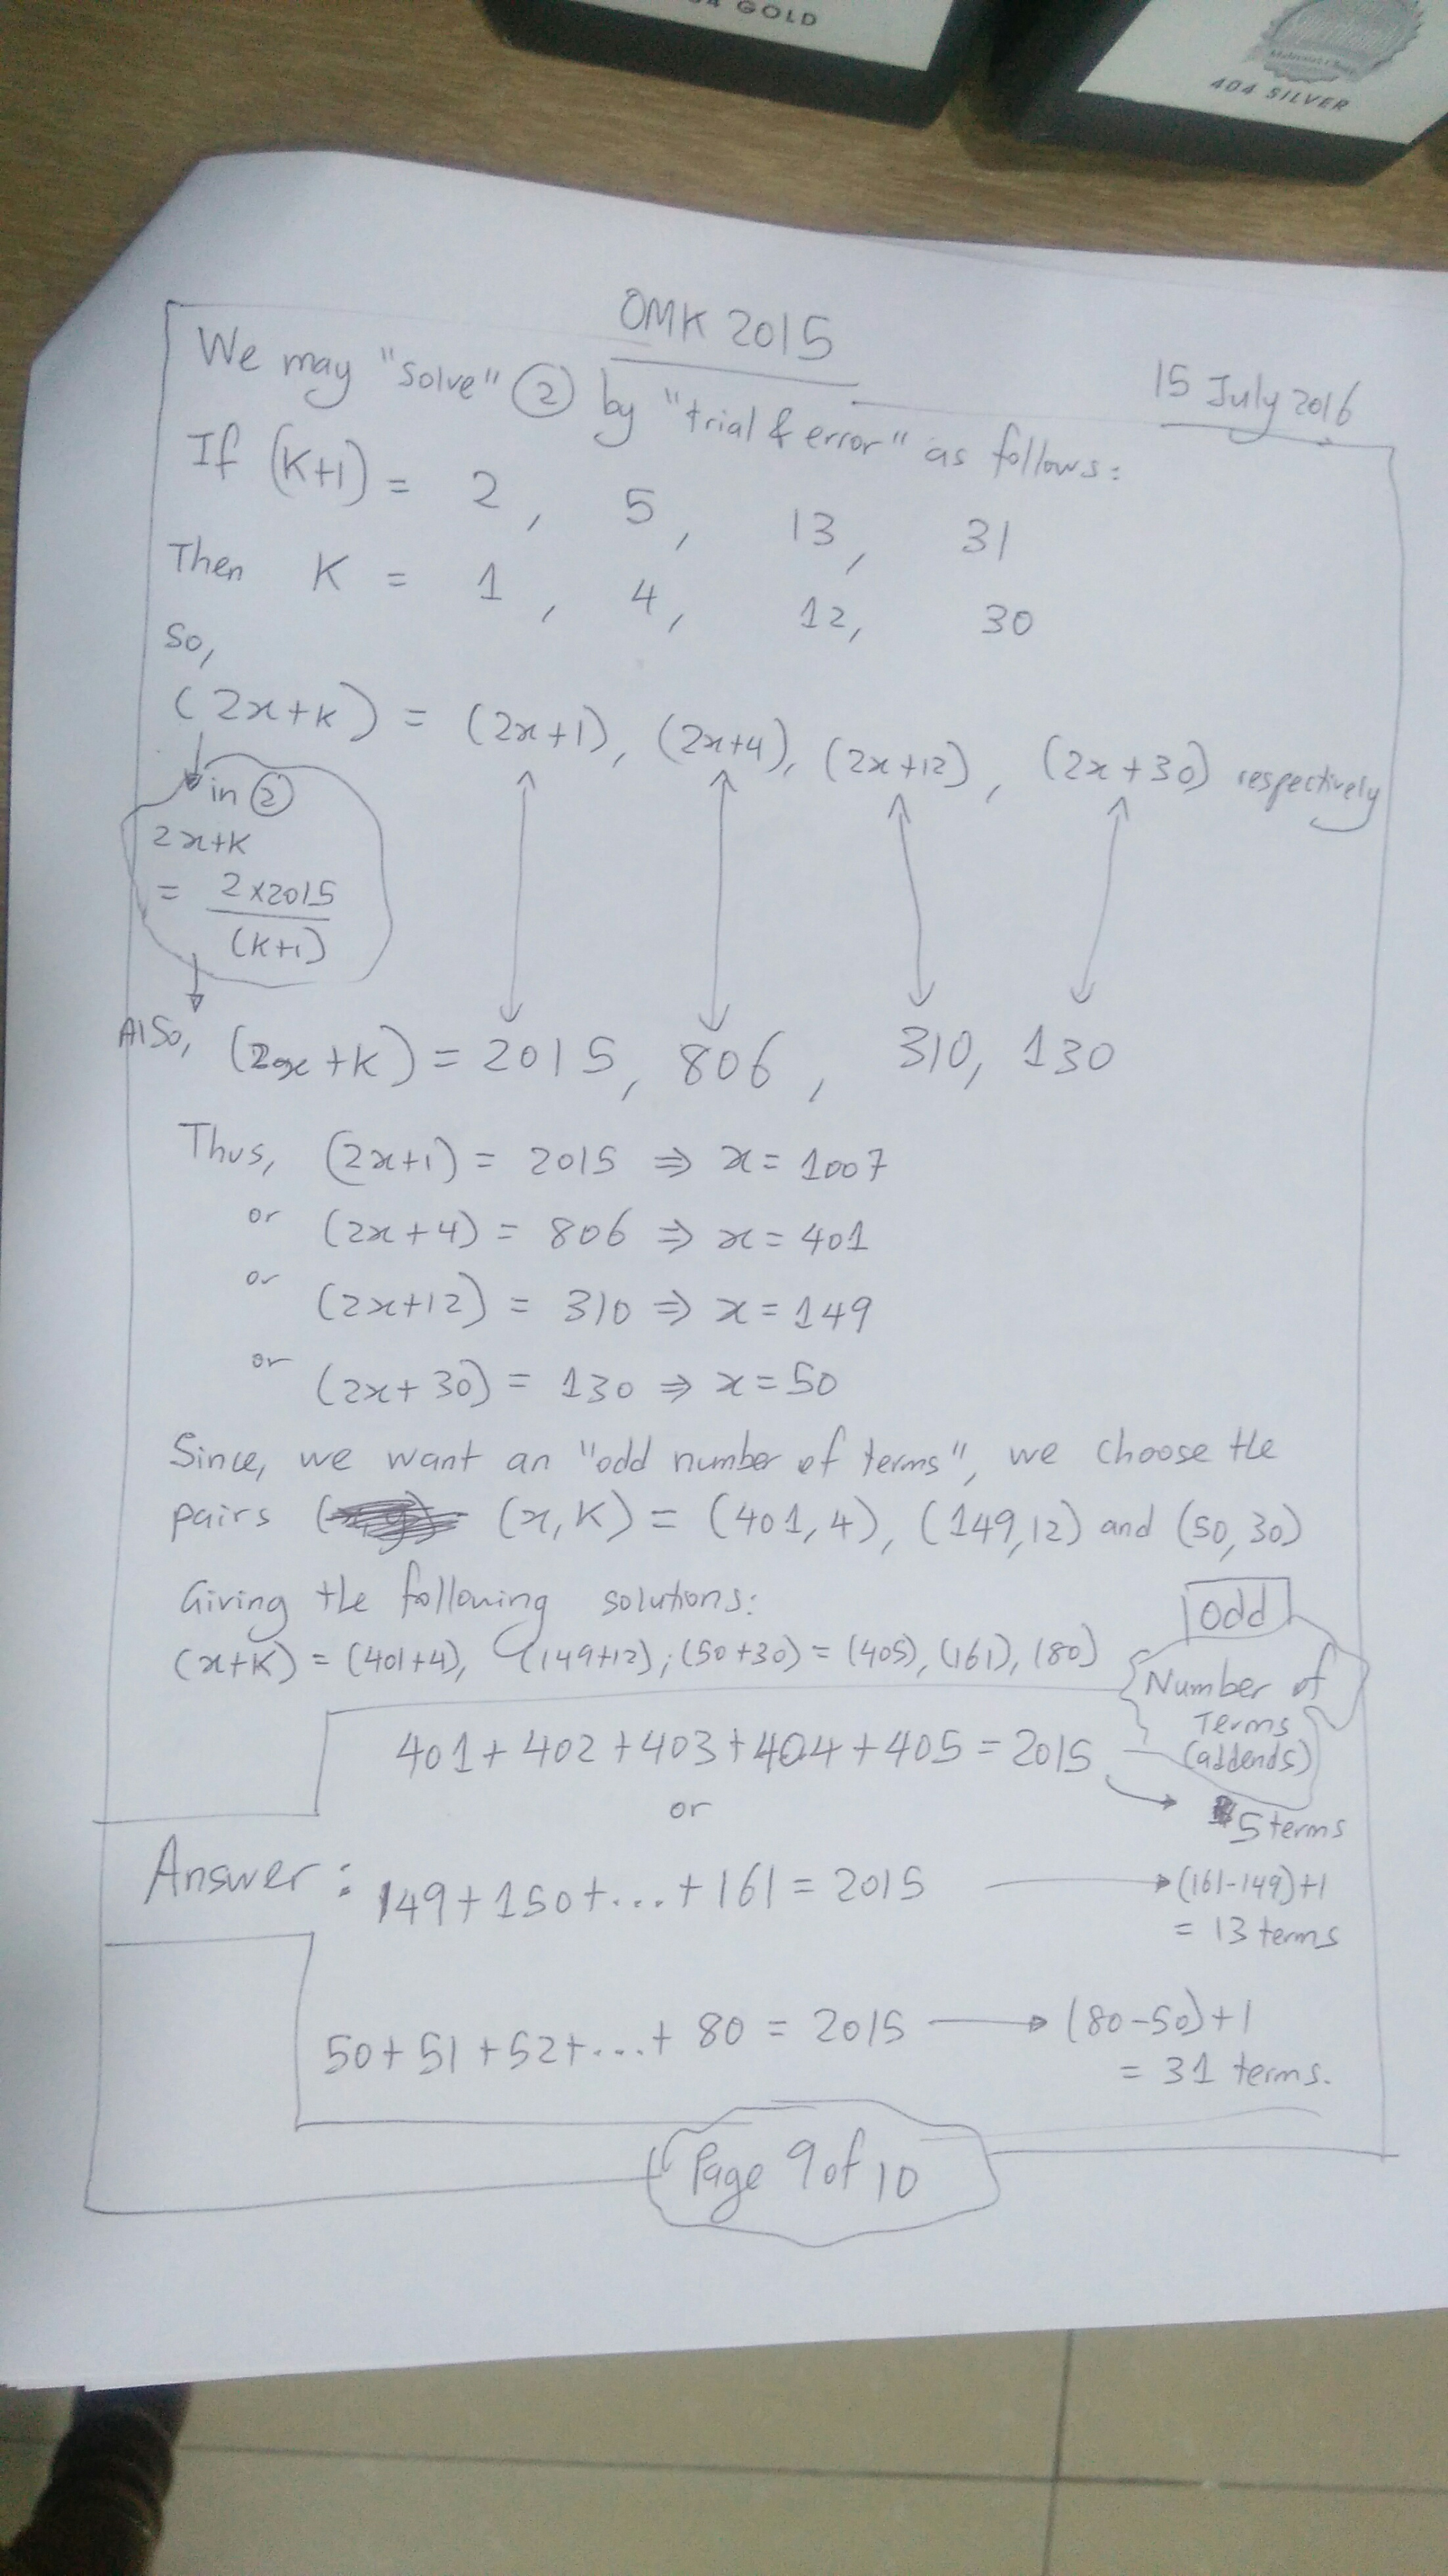 GOLD
404 SILVER
OMK 2015
15 July 2016
We may "solve" ② by "trial & error" as follows:
If (K+1) = 2, 5, 13, 31
Then K = 1, 4, 12, 30
So,
(2x+K) = (2x+1), (2x+4), (2x+12), (2x+30) respectively
in ②
2x+K
= 2×2015
(K+1)
Also, (2x+K) = 2015, 806, 310, 130
Thus, (2x+1) = 2015 ⇒ x = 1007
or (2x+4) = 806 ⇒ x = 401
or (2x+12) = 310 ⇒ x = 149
or (2x+30) = 130 ⇒ x = 50
Since, we want an "odd number of terms", we choose the
pairs (x,K) = (401,4), (149,12) and (50,30)
Giving the following solutions:
(x+K) = (401+4), (149+12), (50+30) = (405), (161), (80)
odd
Number of
Terms
(addends)
401+402+403+404+405 = 2015
5 terms
or
Answer: 149+150+...+161 = 2015 → (161-149)+1
= 13 terms
50+51+52+...+80 = 2015 → (80-50)+1
= 31 terms.
Page 9 of 10